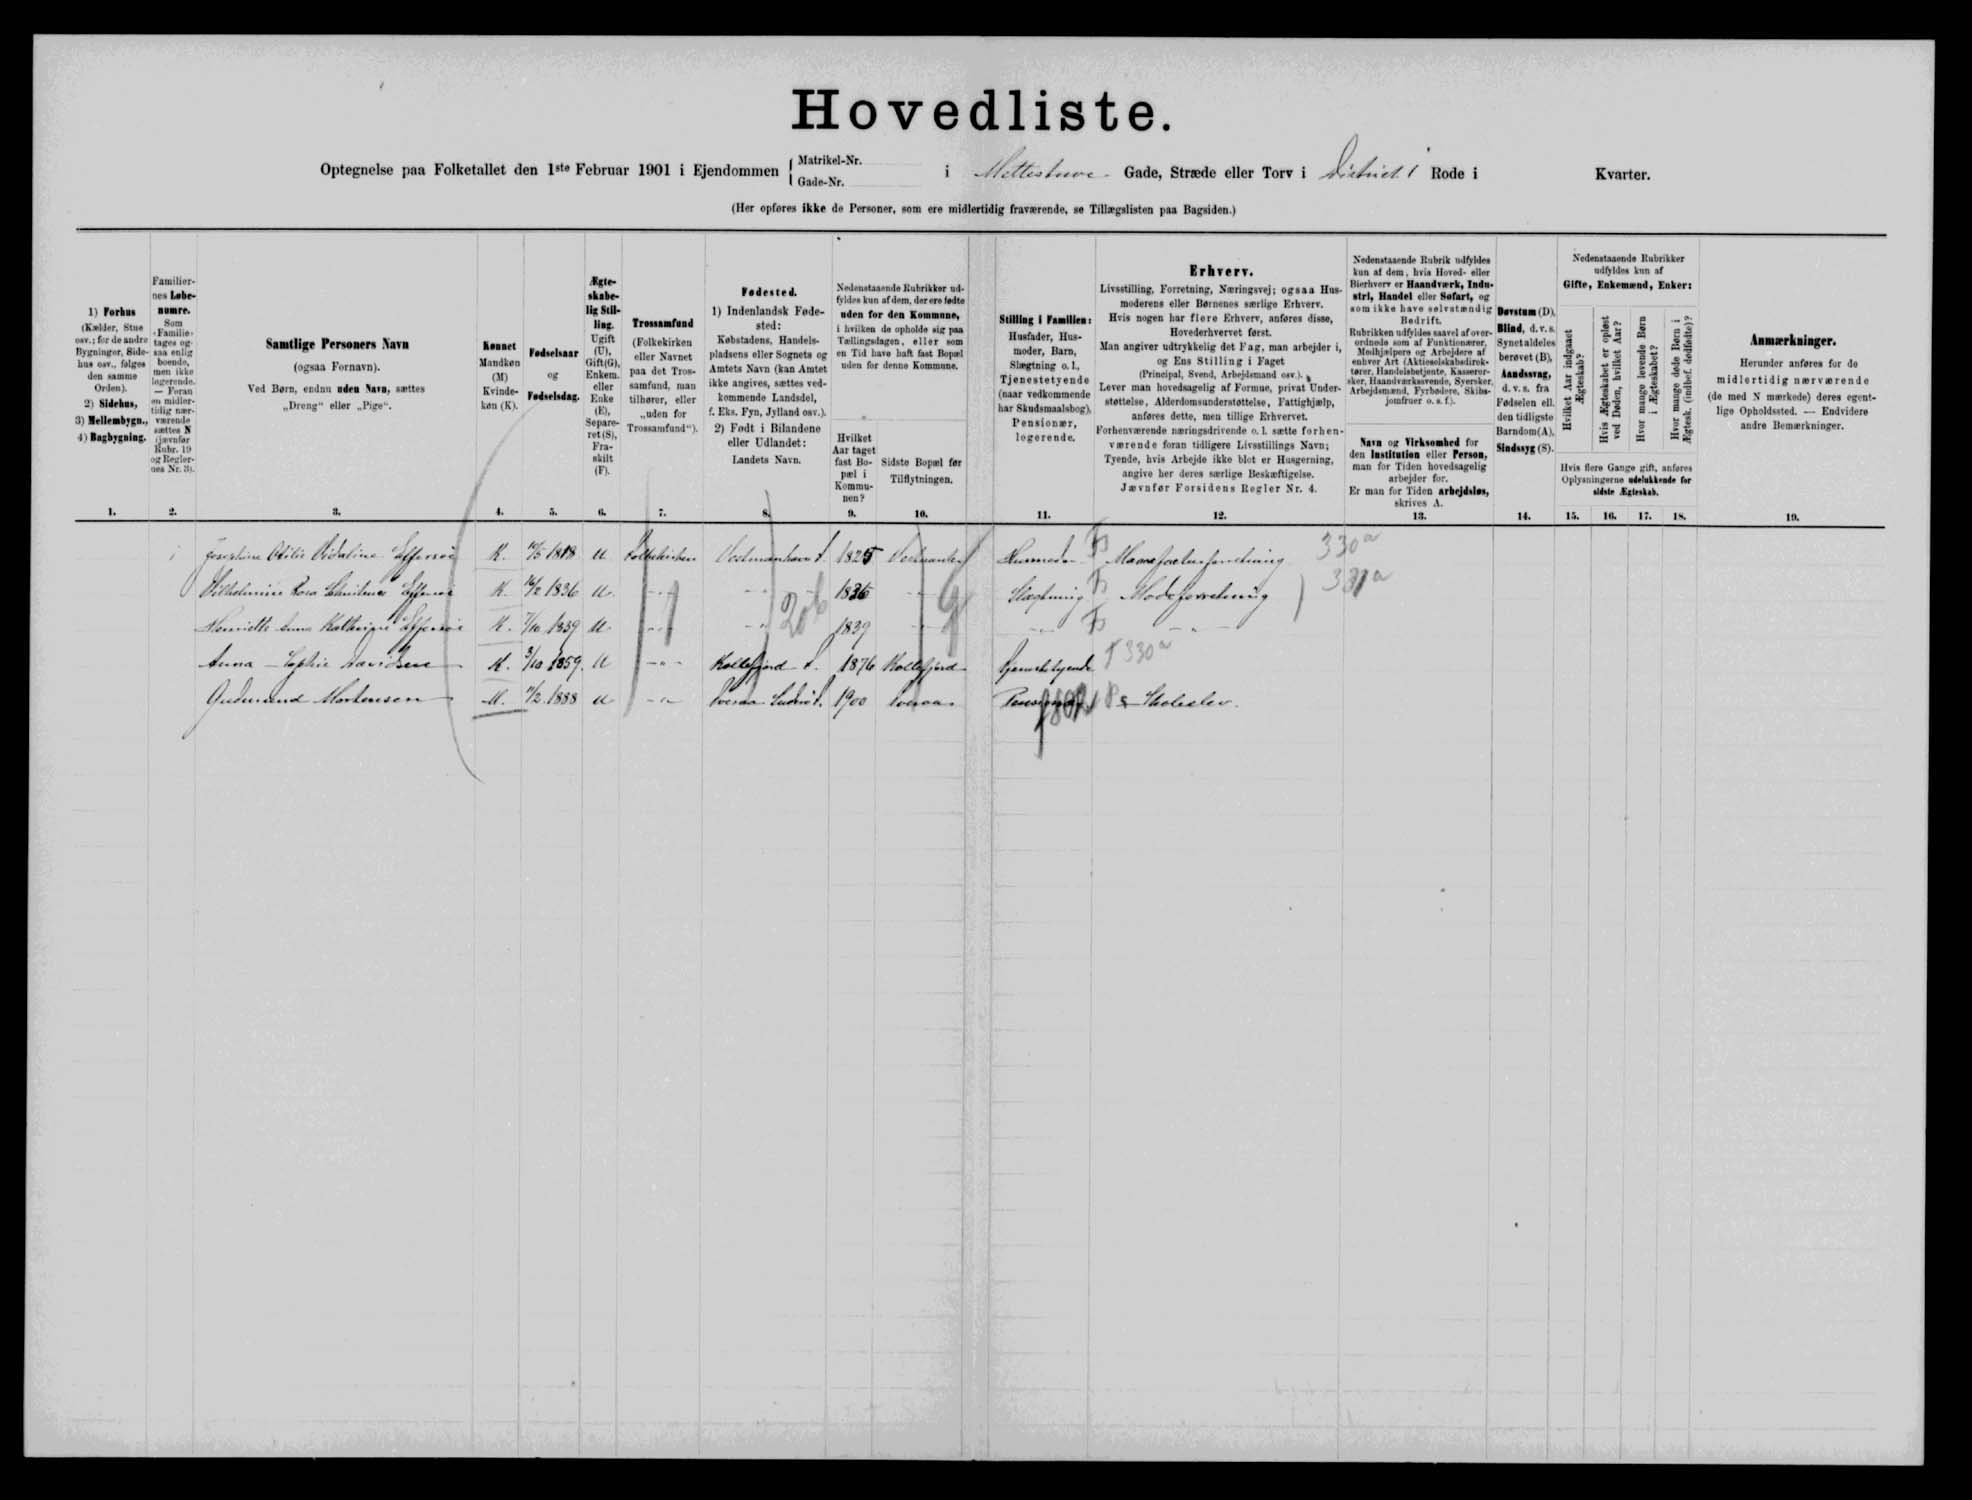 Hovedliste.
Optegnelse paa Folketallet den 1ste Februar 1901 i Ejendommen { Matrikel-Nr. Gade-Nr. i Mettestuve Gade, Stræde eller Torv i District 1 Rode i Kvarter.
(Her opføres ikke de Personer, som ere midlertidig fraværende, se Tillægslisten paa Bagsiden.)
1) Forhus (Kælder, Stue osv.; for de andre Bygninger, Sidehus osv., følges den samme Orden). 2) Sidehus, 3) Mellembygn., 4) Bagbygning.
Familiernes Løbenumre. Som »Familie« tages ogsaa enlig boende, men ikke logerende. — Foran en midlertidig nærværende sættes N (jævnfør Rubr. 19 og Reglernes Nr. 3).
Samtlige Personers Navn (ogsaa Fornavn). Ved Børn, endnu uden Navn, sættes „Dreng“ eller „Pige“.
Kønnet Mandkøn (M) Kvindekøn (K).
Fødselsaar og Fødselsdag.
Ægteskabelig Stilling. Ugift (U), Gift(G), Enkem. eller Enke (E), Separeret(S), Fraskilt (F).
Trossamfund (Folkekirken eller Navnet paa det Trossamfund, man tilhører, eller „uden for Trossamfund“).
Fødested. 1) Indenlandsk Fødested: Købstadens, Handelspladsens eller Sognets og Amtets Navn (kan Amtet ikke angives, sættes vedkommende Landsdel, f. Eks. Fyn, Jylland osv.). 2) Født i Bilandene eller Udlandet: Landets Navn.
Nedenstaaende Rubrikker udfyldes kun af dem, der ere fødte uden for den Kommune, i hvilken de opholde sig paa Tællingsdagen, eller som en Tid have haft fast Bopæl uden for denne Kommune.
Hvilket Aar taget fast Bopæl i Kommunen?
Sidste Bopæl før Tilflytningen.
Stilling i Familien: Husfader, Husmoder, Barn, Slægtning o. l., Tjenestetyende (naar vedkommende har Skudsmaalsbog), Pensionær, logerende.
Erhverv. Livsstilling, Forretning, Næringsvej; ogsaa Husmoderens eller Børnenes særlige Erhverv. Hvis nogen har flere Erhverv, anføres disse, Hovederhvervet først. Man angiver udtrykkelig det Fag, man arbejder i, og Ens Stilling i Faget (Principal, Svend, Arbejdsmand osv.). Lever man hovedsagelig af Formue, privat Understøttelse, Alderdomsunderstøttelse, Fattighjælp, anføres dette, men tillige Erhvervet. Forhenværende næringsdrivende o. l. sætte forhenværende foran tidligere Livsstillings Navn; Tyende, hvis Arbejde ikke blot er Husgerning, angive her deres særlige Beskæftigelse. Jævnfør Forsidens Regler Nr. 4.
Nedenstaaende Rubrik udfyldes kun af dem, hvis Hoved- eller Bierhverv er Haandværk, Industri, Handel eller Søfart, og som ikke have selvstændig Bedrift. Rubrikken udfyldes saavel af overordnede som af Funktionærer, Medhjælpere og Arbejdere af enhver Art (Aktieselskabsdirektører, Handelsbetjente, Kasserersker, Haandværkssvende, Syersker, Arbejdsmænd, Fyrbødere, Skibsjomfruer o. s. f.).
Navn og Virksomhed for den Institution eller Person, man for Tiden hovedsagelig arbejder for. Er man for Tiden arbejdsløs, skrives A.
Døvstum (D), Blind, d. v. s. Synet aldeles berøvet (B), Aandssvag, d. v. s. fra Fødselen ell. den tidligste Barndom (A), Sindssyg (S).
Nedenstaaende Rubrikker udfyldes kun af Gifte, Enkemænd, Enker:
Hvilket Aar indgaaet Ægteskab?
Hvis Ægteskabet er opløst ved Døden, hvilket Aar?
Hvor mange levende Børn i Ægteskabet?
Hvor mange døde Børn i Ægtesk. (indbef. dødfødte)?
Hvis flere Gange gift, anføres Oplysningerne udelukkende for sidste Ægteskab.
Anmærkninger. Herunder anføres for de midlertidig nærværende (de med N mærkede) deres egentlige Opholdssted. — Endvidere andre Bemærkninger.
1. 2. 3. 4. 5. 6. 7. 8. 9. 10. 11. 12. 13. 14. 15. 16. 17. 18. 19.
1 Josephine Vidaline Effersøe K. U Folkekirken 1825 Husmoder 330a
Vilhelmine Rosa Effersøe K. 16/2 1836 U -"- -"- 1836 -"- Slægtning Modeforretning 331a
Henriette Anna Kathrine Effersøe K. 7/10 1839 U -"- -"- 1839 -"- -"- -"-
206
Anna Sophie Davidsen K. 3/10 1859 U -"- Kollefjord 1876 Kollefjord Tjenestetyende 330a
Gudmund Mortensen M. 1888 U -"- 1900 Pensionær Skoleelev.